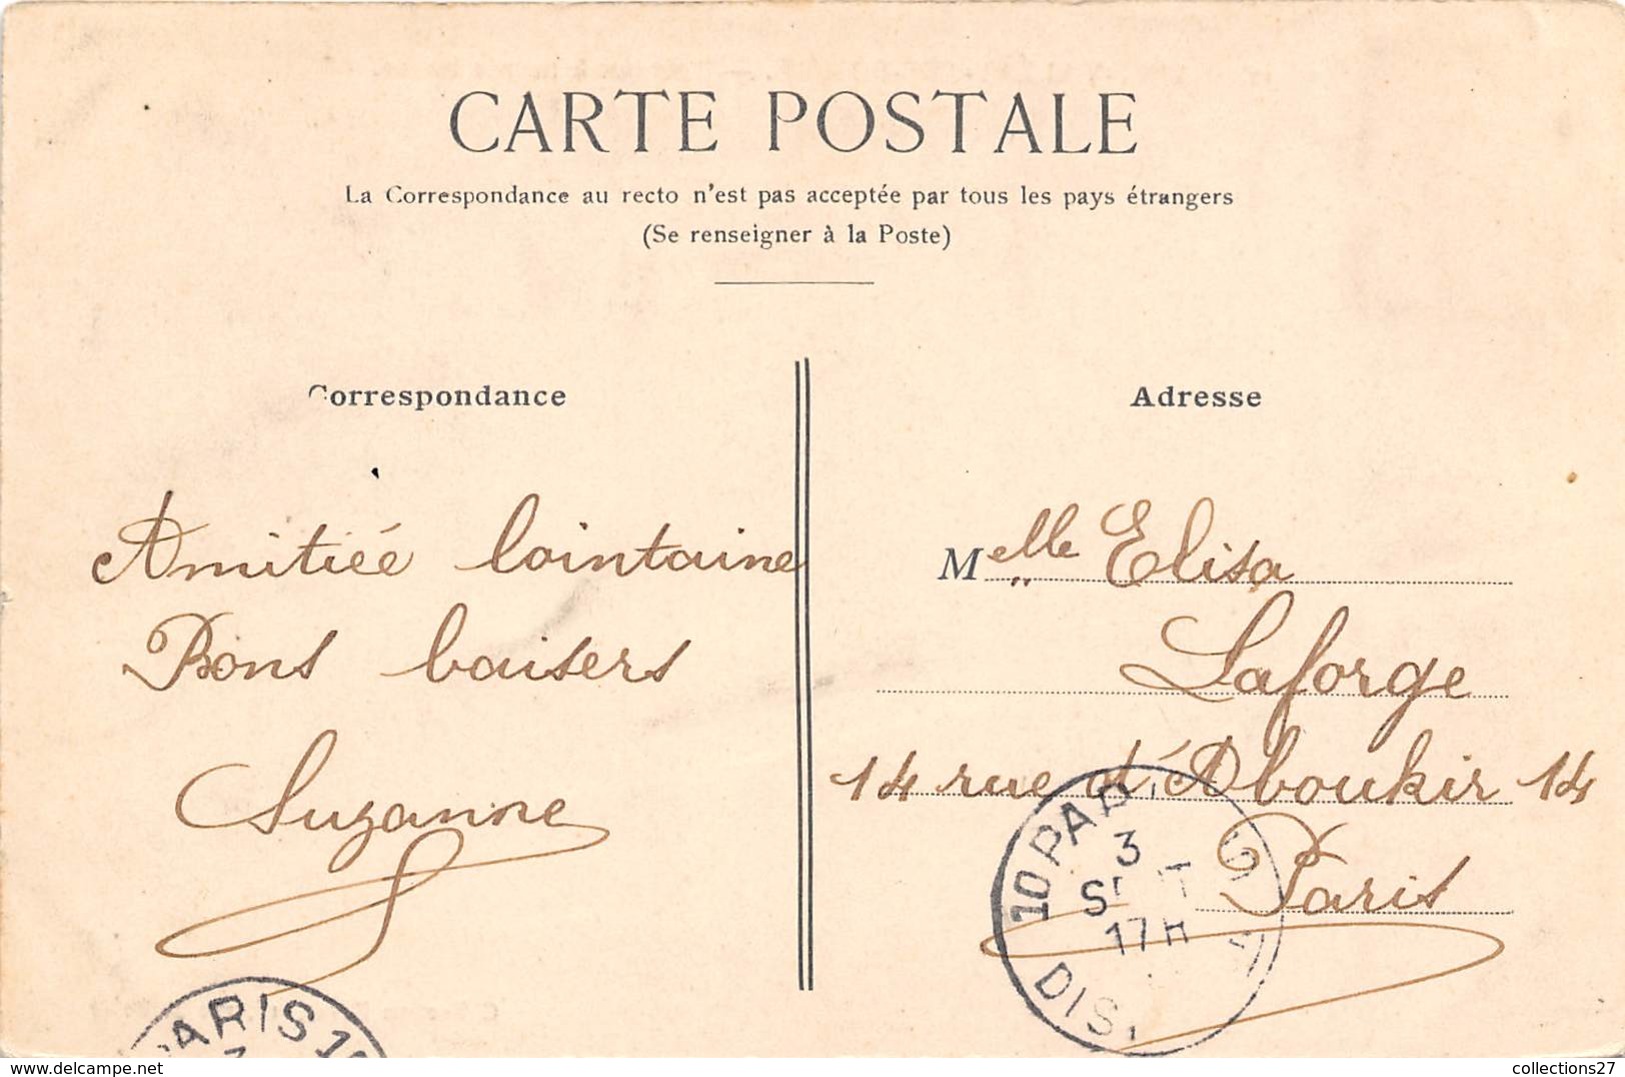 CARTE POSTALE
La Correspondance au recto n'est pas acceptée par tous les pays étrangers
(Se renseigner à la Poste)
Correspondance
Amitiée lointaine
Bons baisers
Suzanne
Adresse
Melle Elisa
Laforge
14 rue d'Aboukir 14
Paris
10 PARIS
3
SEPT
17H
DIS
PARIS
3
delcampe.net
collections27